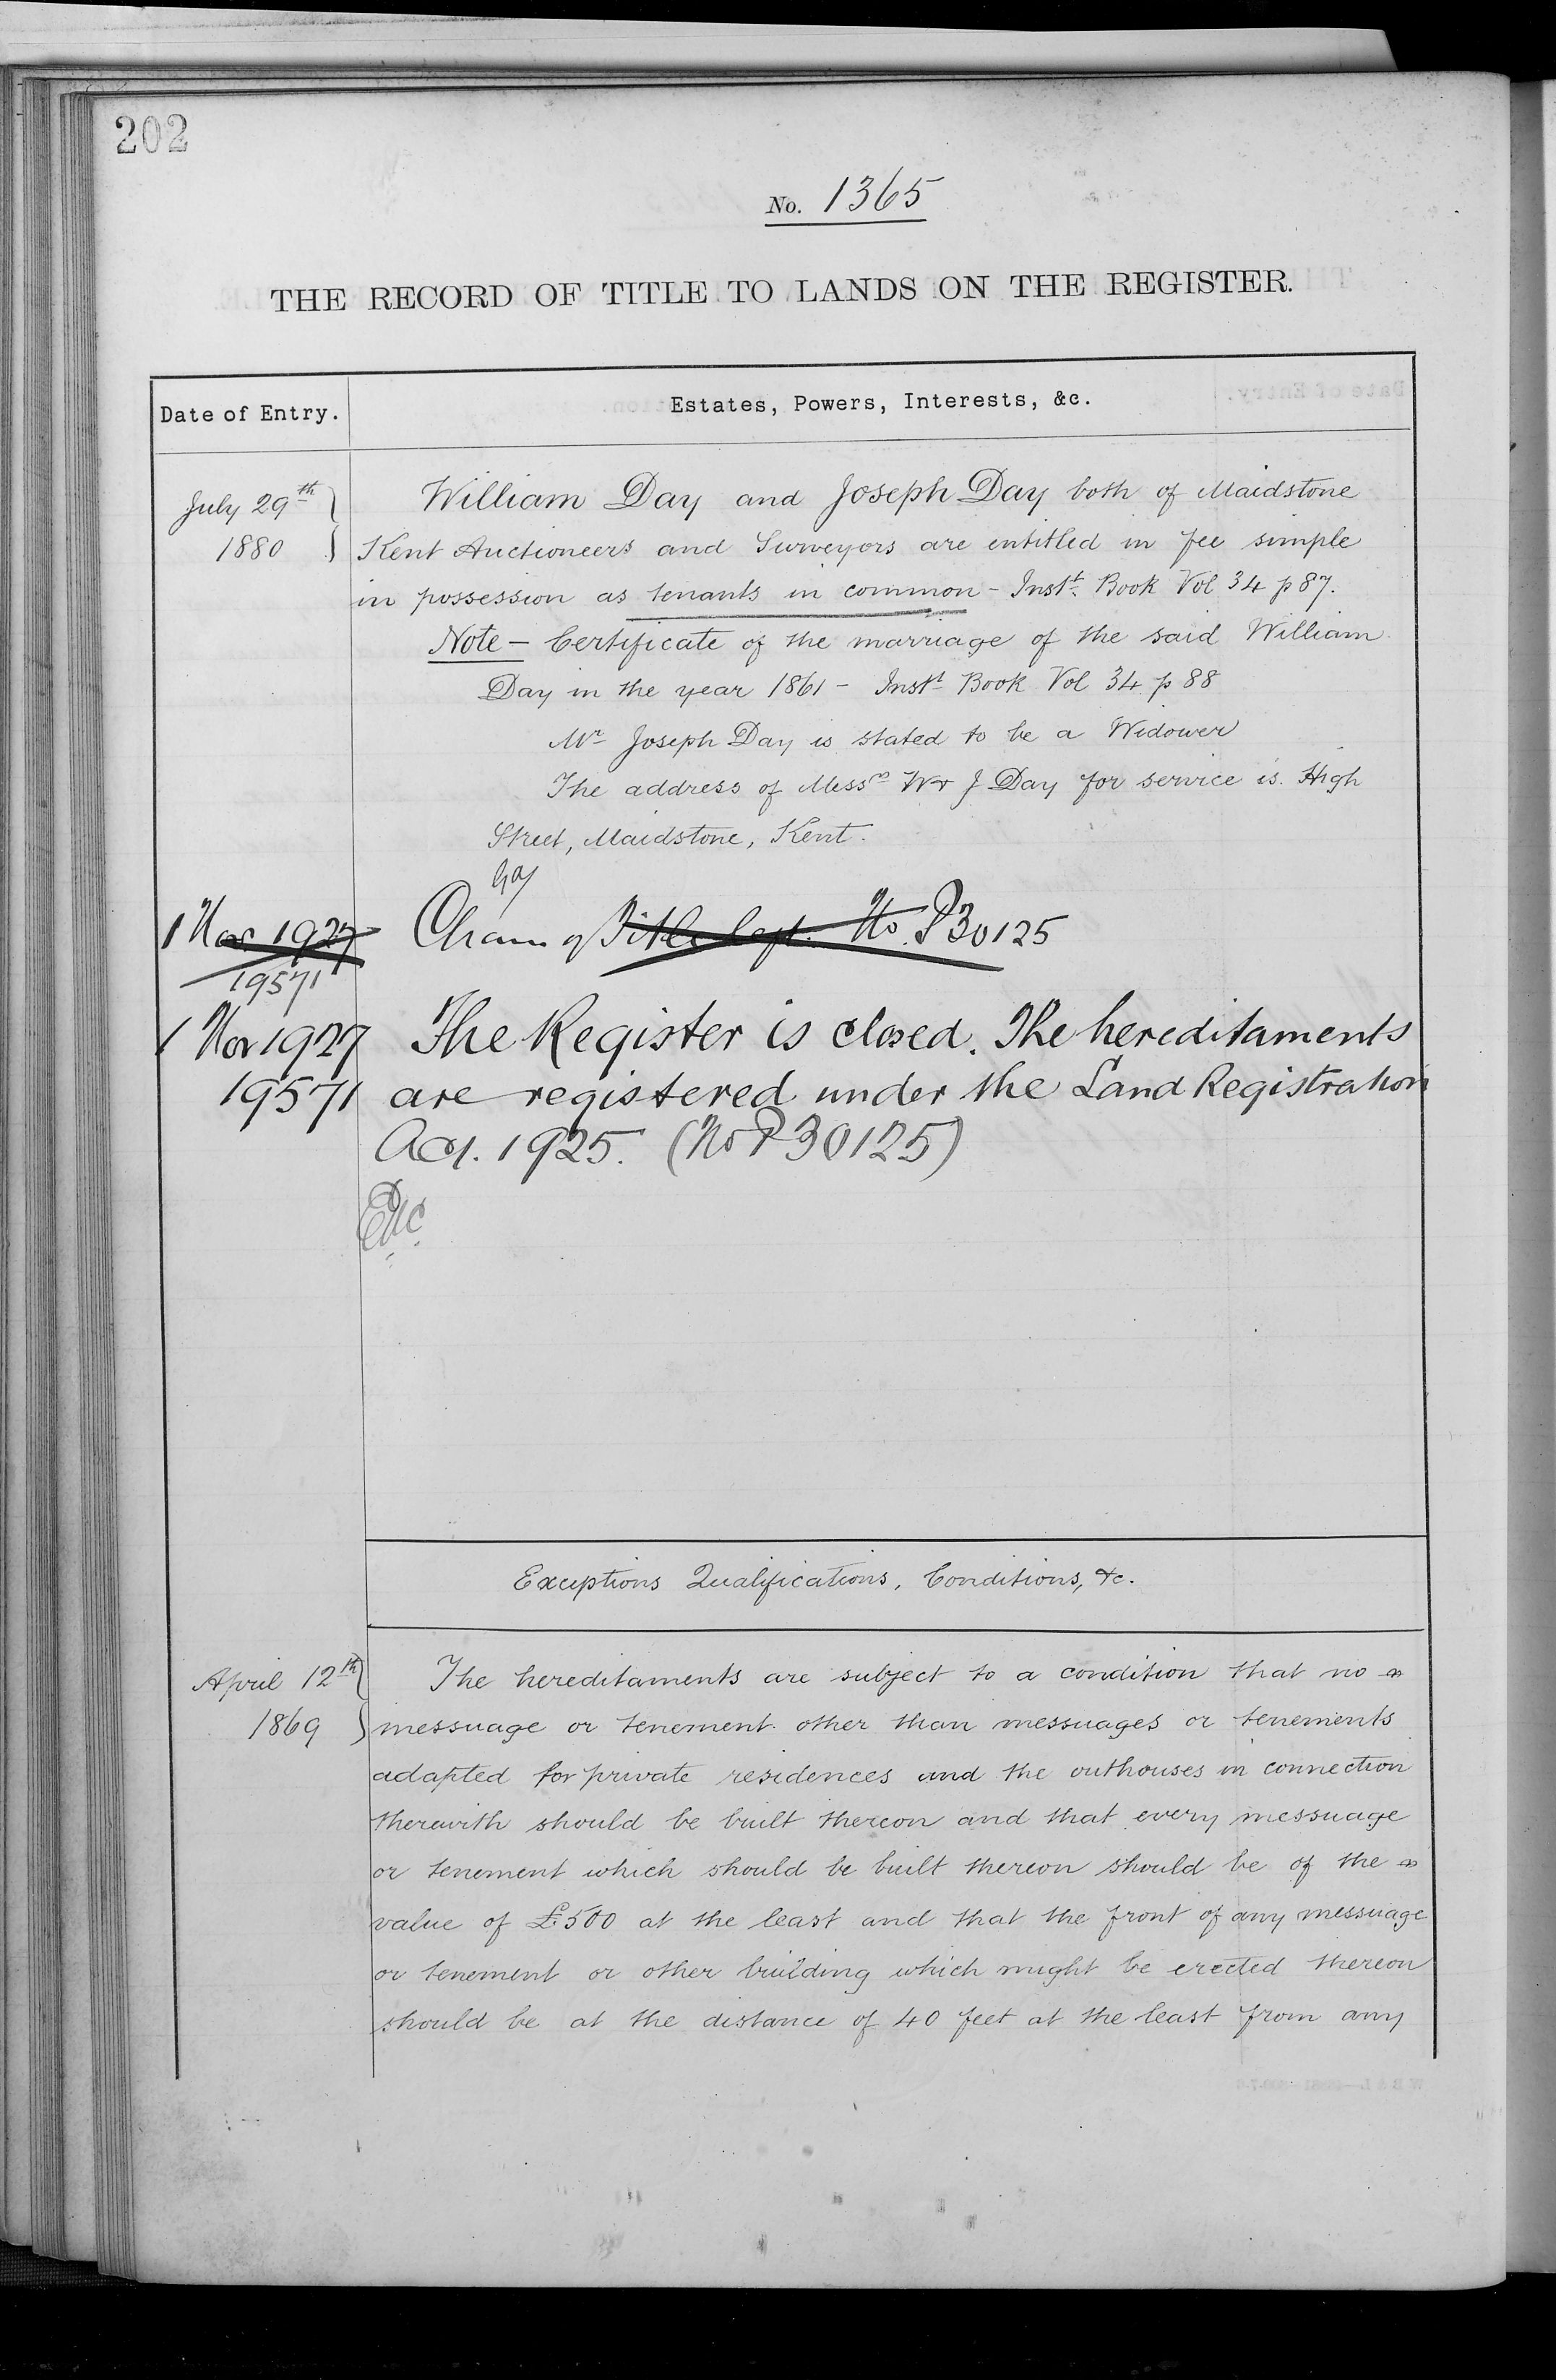 202
No. 1365
THE RECORD OF TITLE TO LANDS ON THE REGISTER.
Date of Entry.
Estates, Powers, Interests, &c.
July 29th
1880
William Day and Joseph Day both of Maidstone
Kent Auctioneers and Surveyors are entitled in fee simple
in possession as tenants in common - Instt. Book Vol 34 p 87.
Note - Certificate of the marriage of the said William
Day in the year 1861 - Instt Book Vol 34 p 88
Mr Joseph Day is stated to be a Widower
The address of Messrs W & J Day for service is High
Street, Maidstone, Kent.
1 Nov 1927
19571
of Title No. P30125
1 Nov 1927
19571
The Register is closed. The hereditaments
are registered under the Land Registration
Act. 1925. (No P30125)
Exceptions Qualifications, Conditions, &c.
April 12th
1869
The hereditaments are subject to a condition that no
messuage or tenement other than messuages or tenements
adapted for private residences and the outhouses in connection
therewith should be built thereon and that every messuage
or tenement which should be built thereon should be of the
value of £500 at the least and that the front of any messuage
or tenement or other building which might be erected thereon
should be at the distance of 40 feet at the least from any